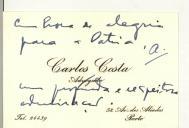 em hora de alegria
para a Patria. A.
Carlos Costa
Advogado
com profunda e respeitosa
admiração!
Tel. 24439
58, Av. dos Aliados
Porto